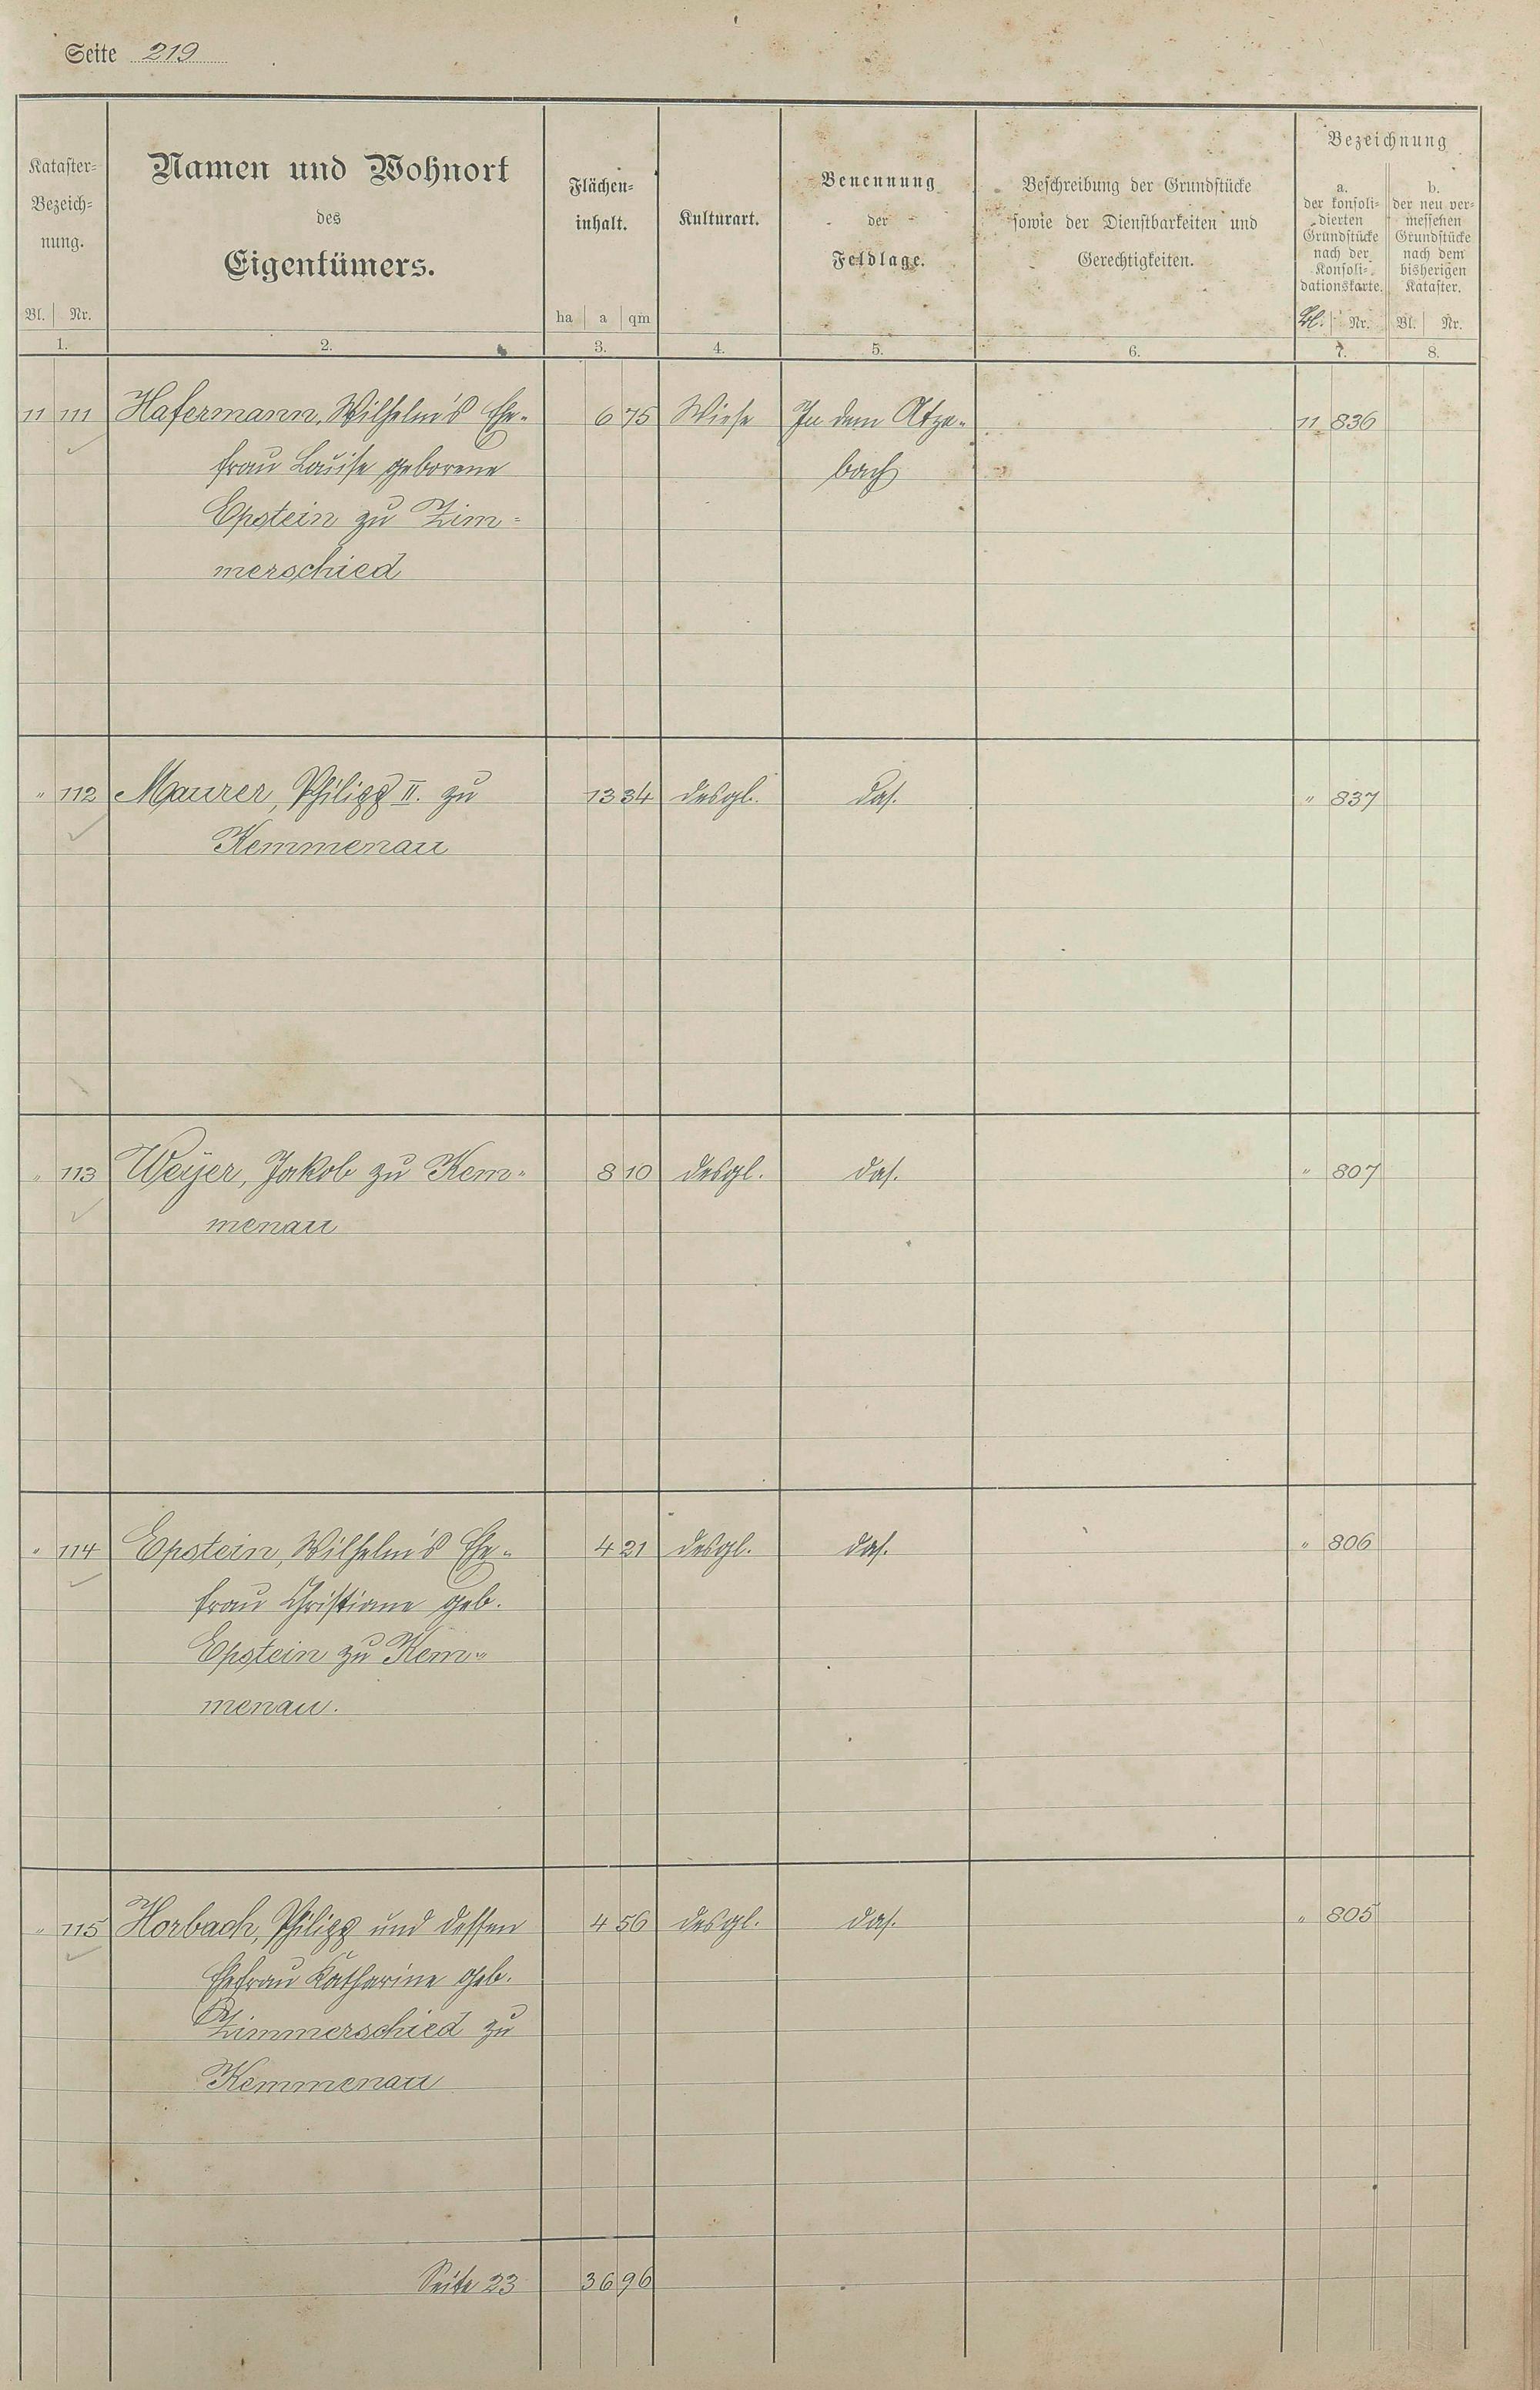 Seite 219
Kataster-
Bezeich-
nung.
Bl. Nr.
1.
Namen und Wohnort
des
Eigentümers.
2.
Flächen-
inhalt.
ha a qm
3.
Kulturart.
4.
Benennung
der
Feldlage.
5.
Beschreibung der Grundstücke
sowie der Dienstbarkeiten und
Gerechtigkeiten.
6.
Bezeichnung
a.
der konsoli-
dierten
Grundstücke
nach der
Konsoli-
dationskarte.
Bl. Nr.
7.
b.
der neu ver-
messenen
Grundstücke
nach dem
bisherigen
Kataster.
Bl. Nr.
8.
11 111 Hafermann, Wilhelm's Ehe- 6 75 Wiese In dem Atze- 11 836
frau Louise geborene bach
Epstein zu Zim-
merschied
" 112 Maurer, Philipp II. zu 13 34 desgl. das. " 837
Kemmenau
" 113 Weyer, Jakob zu Kem- 8 10 desgl. das. " 807
menau
" 114 Epstein, Wilhelm's Ehe- 4 21 desgl. das. " 806
frau Christiane geb.
Epstein zu Kem-
menau.
" 115 Horbach, Philipp und dessen 4 56 desgl. das. " 805
Ehefrau Katharine geb.
Zimmerschied zu
Kemmenau
Seite 23 36 96